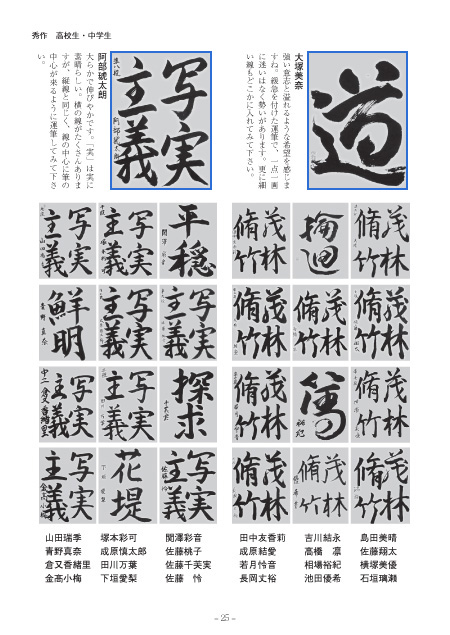 秀作　高校生・中学生
大塚美奈
強い意志と溢れるような希望を感じま
すね。緩急を付けた運筆で、一点一画
に迷いはなく勢いがあります。更に細
い線もどこかに入れてみて下さい。
道
阿部琥太朗
大らかで伸びやかです。「実」は実に
素晴らしい。横の線がたくさんありま
すが、縦線と同じく、線の中心に筆の
中心が来るように運筆してみて下さ
い。
写実
主義
茂林
脩竹
茂林
脩竹
平穏
写実
主義
写実
主義
茂林
脩竹
茂林
脩竹
茂林
脩竹
写実
主義
写実
主義
鮮明
茂林
脩竹
茂林
脩竹
探求
写実
主義
写実
主義
中二 倉又香緒里
茂林
脩竹
茂林
脩竹
茂林
脩竹
写実
主義
花堤
写実
主義
金高小梅
島田美晴
佐藤翔太
横塚美優
石垣璃瀬
吉川結永
高橋　凛
相場裕紀
池田優希
田中友香莉
成原結愛
若月怜音
長岡丈裕
関澤彩音
佐藤桃子
佐藤千芙実
佐藤　怜
塚本彩可
成原慎太郎
田川万葉
下垣愛梨
山田瑞季
青野真奈
倉又香緒里
金高小梅
– 25 –